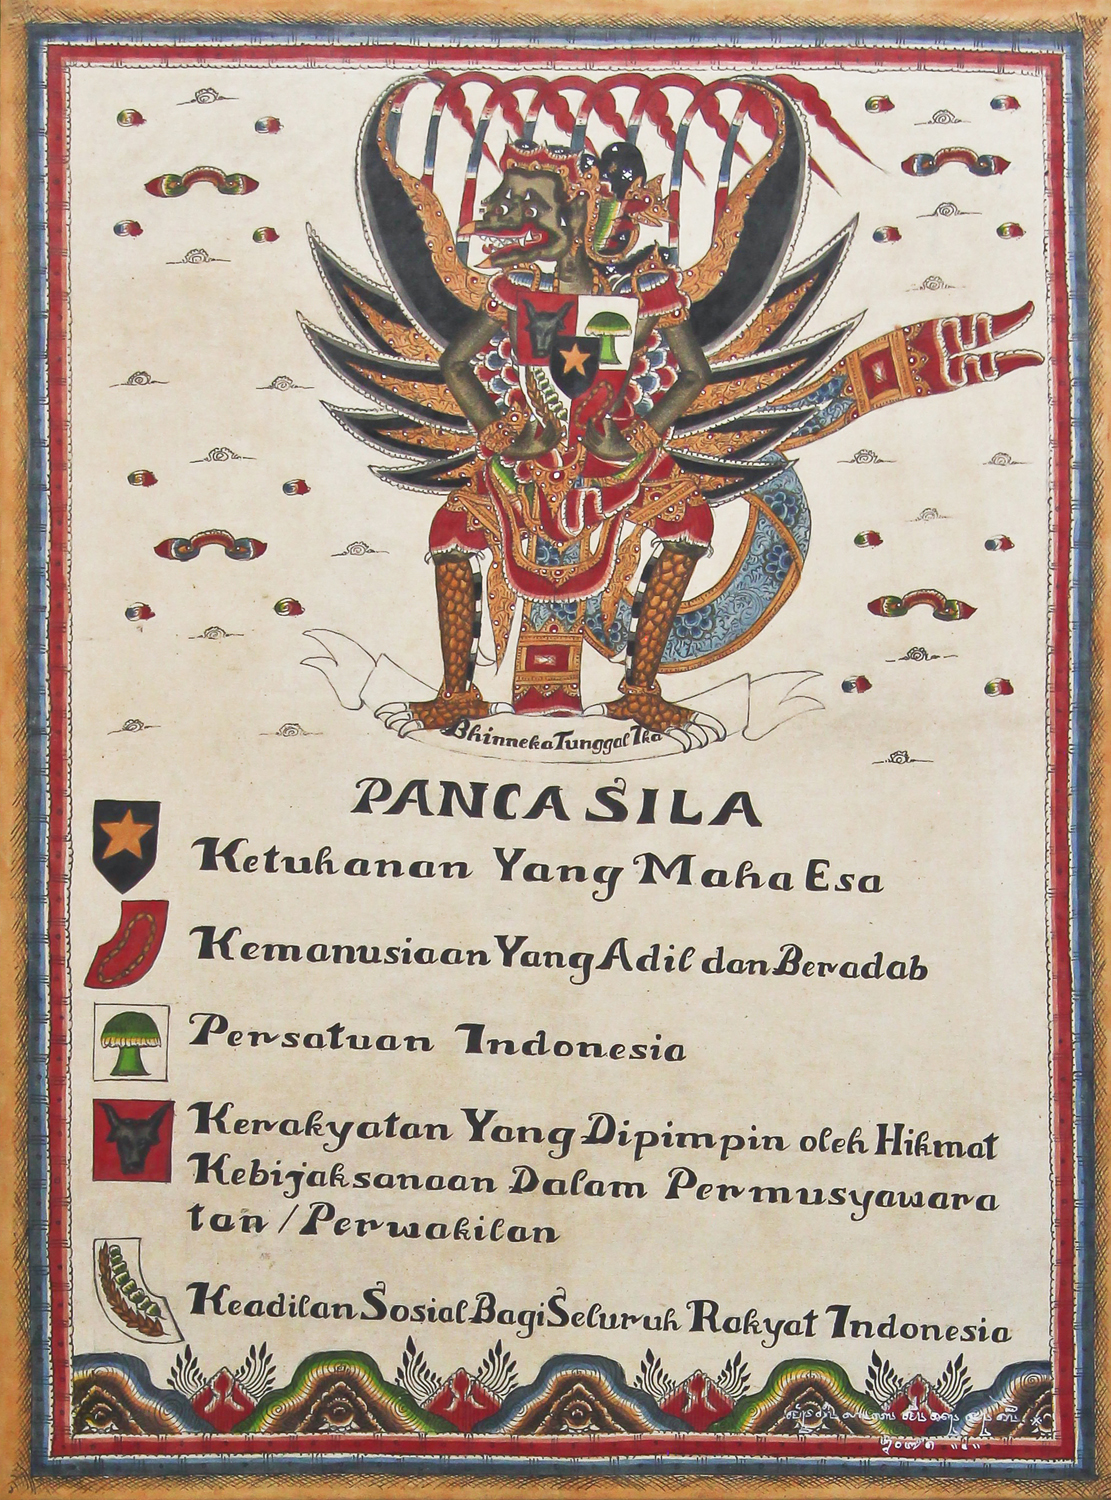 Bhinneka Tunggal Ika
PANCA SILA
Ketuhanan Yang Maha Esa
Kemanusiaan Yang Adil dan Beradab
Persatuan Indonesia
Kerakyatan Yang Dipimpin oleh Hikmat
Kebijaksanaan Dalam Permusyawara
tan / Perwakilan
Keadilan Sosial Bagi Seluruh Rakyat Indonesia